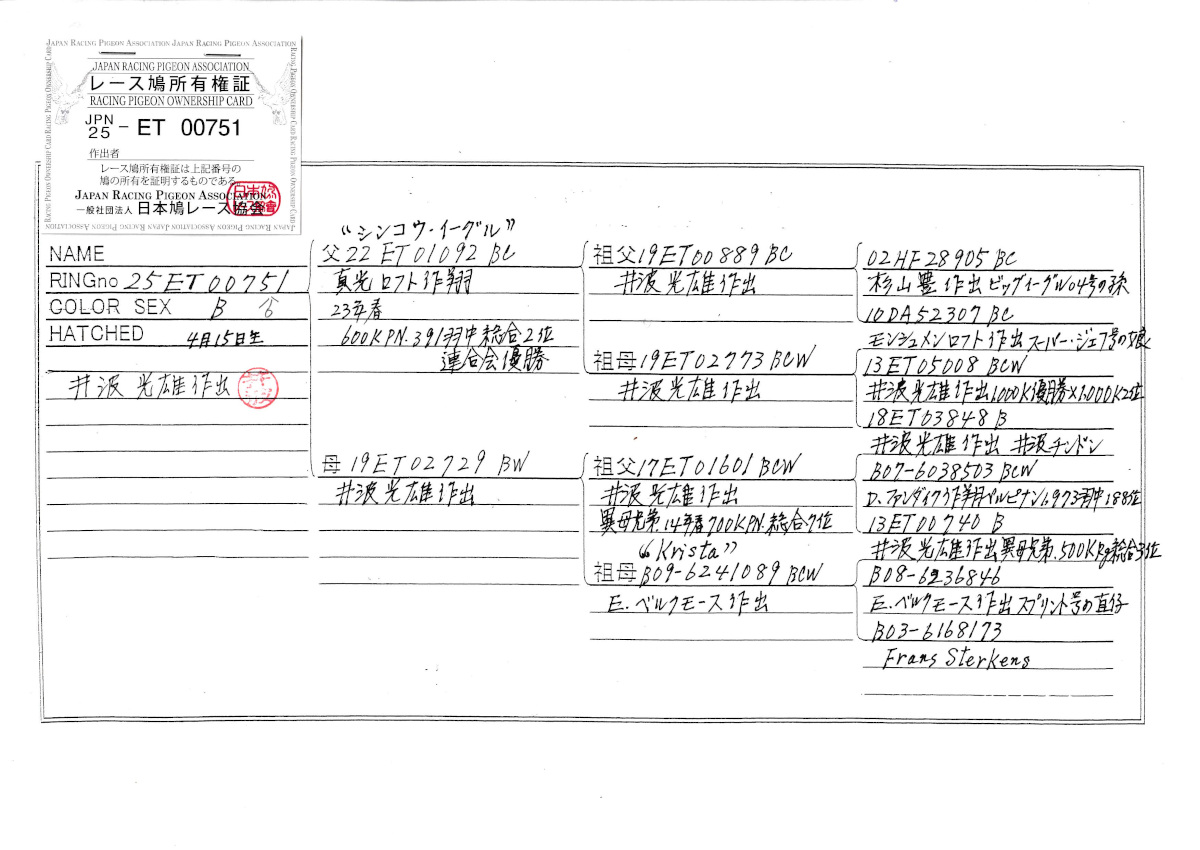 JAPAN RACING PIGEON ASSOCIATION JAPAN RACING PIGEON ASSOCIATION
JAPAN RACING PIGEON ASSOCIATION
レース鳩所有権証
RACING PIGEON OWNERSHIP CARD
JPN
25 - ET 00751
作出者
レース鳩所有権証は上記番号の
鳩の所有を証明するものである。
JAPAN RACING PIGEON ASSOCIATION
一般社団法人 日本鳩レース協会
NAME
RINGno 25ET00751
COLOR SEX B ♂
HATCHED 4月15日生
井波 光雄 作出
“シンコウ・イーグル”
父 22 ET 01092 BC
真光ロフト作翔
23年春
600KPN. 391羽中総合2位
連合会優勝
母 19ET02729 BW
井波 光雄 作出
祖父 19ET00889 BC
井波 光雄 作出
祖母 19ET02773 BCW
井波 光雄 作出
祖父 17ET01601 BCW
井波 光雄 作出
異母兄弟.14年春700KPN.総合7位
“Krista”
祖母 B09-6241089 BCW
E.ベルクモース作出
02HF28905 BC
杉山 豊 作出 ビッグイーグル04号の孫
10DA52307 BC
モンシュメンロフト作出 スーパー・ジェフ号の娘
13ET05008 BCW
井波 光雄 作出1,000K優勝×1,000K2位
18ET03848 B
井波 光雄 作出 井波チンドン
B07-6038503 BCW
D.ファンダイク作翔ペルピナン1,973羽中188位
13ET00740 B
井波光雄作出異母兄弟.500KRg総合3位
B08-6236846
E.ベルクモース作出 スプリント号の直仔
B03-6168173
Frans Sterkens